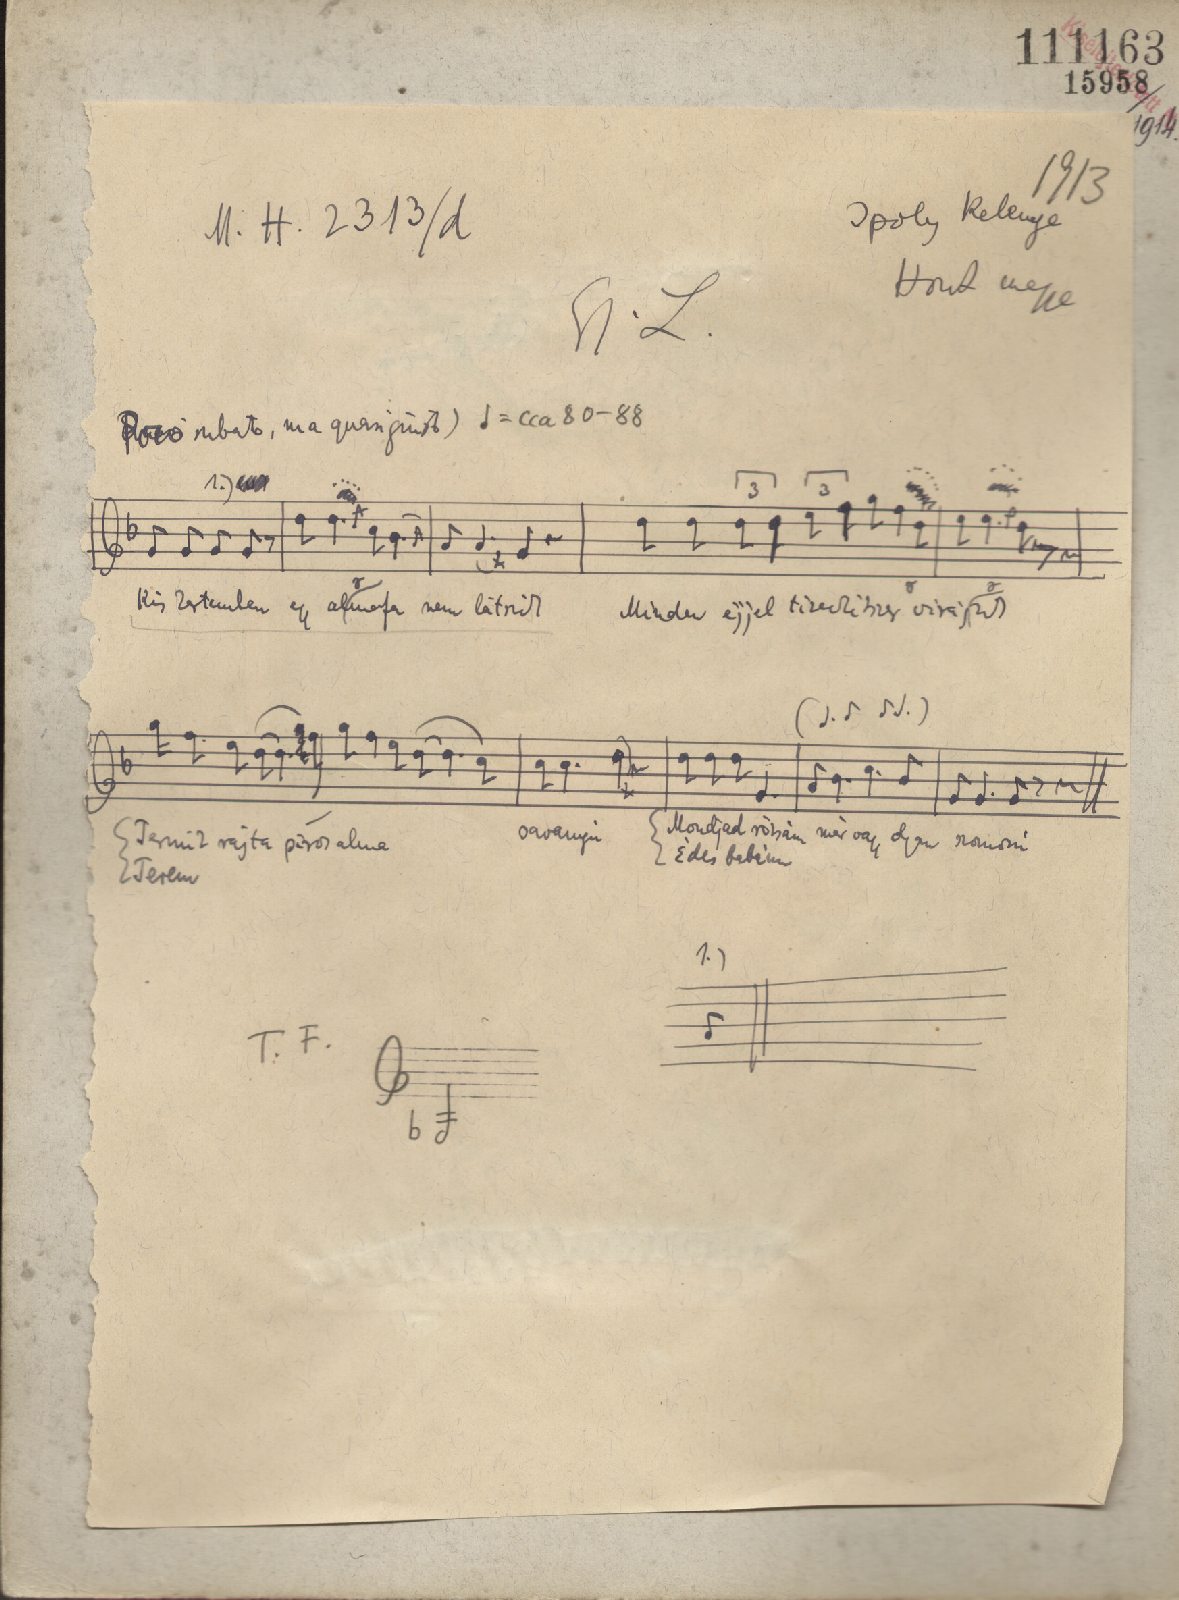 111163
15958
1914.
1913
M. H. 2313/d
Ipoly Kelenye
Hont megye
Gy. L.
Poco rubato, ma quasi giusto) ♩ = cca 80-88
1.)
3 3
Kis kertemben egy almafa nem látszik Minden éjjel tizenkétszer virágzik
(♩. ♪ ♪ ♩.)
Termik rajta piros alma Mondjad rózsám már vagy olyan szomorú
Terem Édes babám
1.)
T. F.